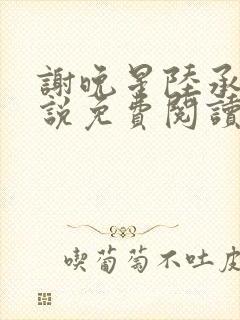 謝晚星陸承
說免費閱讀
喫葡萄不吐皮